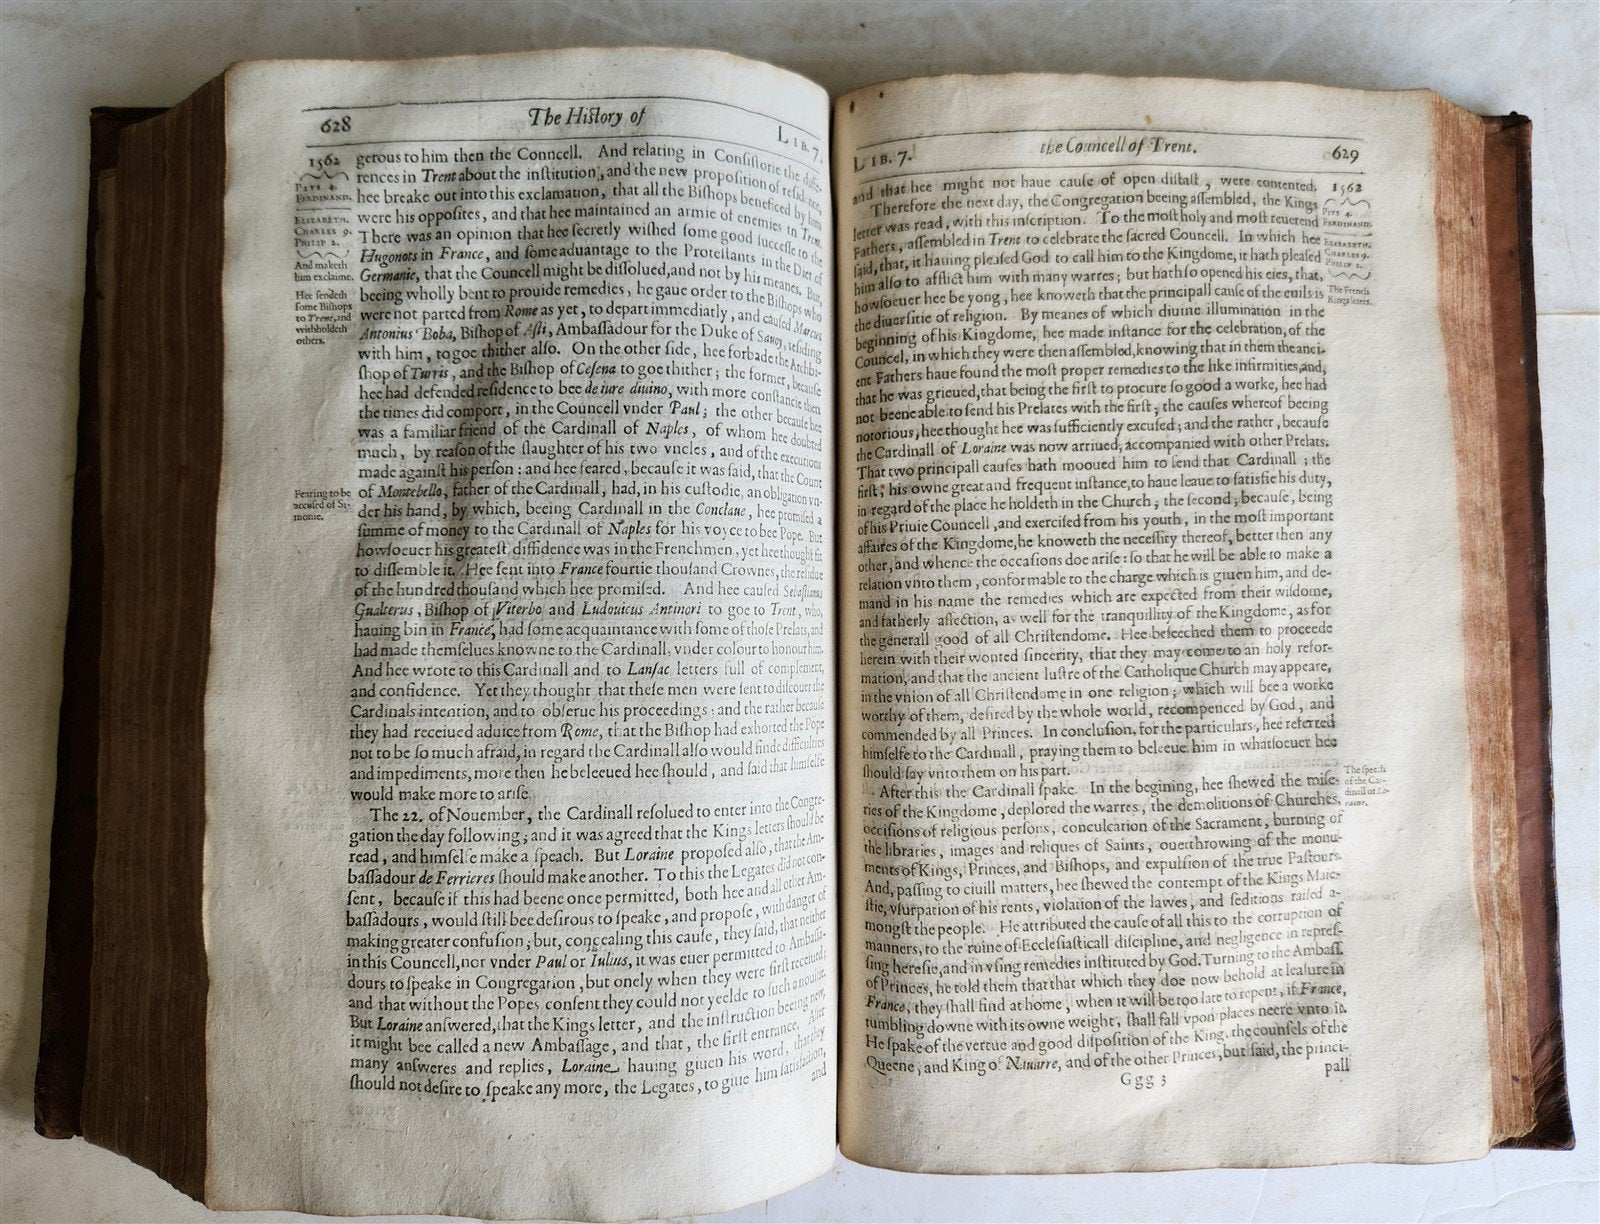 628 The History of LIB. 7.
1562
PIVS 4.
FERDINAND.
ELIZABETH.
CHARLES 9.
PHILIP 2.
And maketh
him exclaime.
Hee sendeth
some Bishops
to Trent, and
withholdeth
others.
Fearing to be
accused of Si-
monie.
gerous to him then the Conncell. And relating in Consistorie the diffe-
rences in Trent about the institution, and the new proposition of residence,
hee breake out into this exclamation, that all the Bishops beneficed by him
were his opposites, and that hee maintained an armie of enemies in Trent.
There was an opinion that hee secretly wished some good successe to the
Hugonots in France, and some aduantage to the Protestants in the Diet of
Germanie, that the Councell might be dissolued, and not by his meanes. But,
beeing wholly bent to prouide remedies, he gaue order to the Bishops who
were not parted from Rome as yet, to depart immediatly, and caused Marcus
Antonius Boba, Bishop of Asti, Ambassadour for the Duke of Sauoy, residing
with him, to goe thither also. On the other side, hee forbade the Archbi-
shop of Turris, and the Bishop of Cesena to goe thither; the former, because
hee had defended residence to bee de iure diuino, with more constancie then
the times did comport, in the Councell vnder Paul; the other because hee
was a familiar friend of the Cardinall of Naples, of whom hee doubted
much, by reason of the slaughter of his two vncles, and of the executions
made against his person: and hee feared, because it was said, that the Count
of Montebello, father of the Cardinall, had, in his custodie, an obligation vn-
der his hand, by which, beeing Cardinall in the Conclaue, hee promised a
summe of money to the Cardinall of Naples for his voyce to bee Pope. But
howsoeuer his greatest diffidence was in the Frenchmen, yet hee thought fit
to dissemble it. Hee sent into France fourtie thousand Crownes, the residue
of the hundred thousand which hee promised. And hee caused Sebastianus
Gualterus, Bishop of Viterbo and Ludouicus Antinori to goe to Trent, who,
hauing bin in France, had some acquaintance with some of those Prelats, and
had made themselues knowne to the Cardinall, vnder colour to honour him.
And hee wrote to this Cardinall and to Lansac letters full of complement,
and confidence. Yet they thought that these men were sent to discouer the
Cardinals intention, and to obserue his proceedings: and the rather because
they had receiued aduice from Rome, that the Bishop had exhorted the Pope
not to be so much afraid, in regard the Cardinall also would finde difficulties
and impediments, more then he beleeued hee should, and said that himselfe
would make more to arise.
The 22. of Nouember, the Cardinall resolued to enter into the Congre-
gation the day following; and it was agreed that the Kings letters should be
read, and himselfe make a speach. But Loraine proposed also, that the Am-
bassadour de Ferrieres should make another. To this the Legates did not con-
sent, because if this had beene once permitted, both hee and all other Am-
bassadours, would still bee desirous to speake, and propose, with danger of
making greater confusion; but, concealing this cause, they said, that neither
in this Councell, nor vnder Paul or Iulius, it was euer permitted to Ambassa-
dours to speake in Congregation, but onely when they were first receiued;
and that without the Popes consent they could not yeelde to such a nouitie.
But Loraine answered, that the Kings letter, and the instruction beeing new,
it might bee called a new Ambassage, and that, the first entrance. After
many answeres and replies, Loraine hauing giuen his word, that they
should not desire to speake any more, the Legates, to giue him satisfaction,
and
LIB. 7. the Councell of Trent. 629
1562
PIVS 4.
FERDINAND.
ELIZABETH.
CHARLES 9.
PHILIP 2.
The French
Kings letters.
The speech
of the Car-
dinall of Lo-
raine.
and that hee might not haue cause of open distast, were contented.
Therefore the next day, the Congregation beeing assembled, the Kings
letter was read, with this inscription. To the most holy and most reuerend
Fathers, assembled in Trent to celebrate the sacred Councell. In which hee
said, that, it hauing pleased God to call him to the Kingdome, it hath pleased
him also to afflict him with many warres; but hath so opened his eies, that,
howsoeuer hee be yong, hee knoweth that the principall cause of the euils is
the diuersitie of religion. By meanes of which diuine illumination in the
beginning of his Kingdome, hee made instance for the celebration, of the
Councel, in which they were then assembled, knowing that in them the anci-
ent Fathers haue found the most proper remedies to the like infirmities, and,
that he was grieued, that being the first to procure so good a worke, hee had
not beene able to send his Prelates with the first; the causes whereof beeing
notorious, hee thought hee was sufficiently excused; and the rather, because
the Cardinall of Loraine was now arriued, accompanied with other Prelats.
That two principall causes hath mooued him to send that Cardinall; the
first, his owne great and frequent instance, to haue leaue to satisfie his duty,
in regard of the place he holdeth in the Church; the second; because, being
of his Priuie Councell, and exercised from his youth, in the most important
affaires of the Kingdome, he knoweth the necessity thereof, better then any
other, and whence the occasions doe arise: so that he will be able to make a
relation vnto them, conformable to the charge which is giuen him, and de-
mand in his name the remedies which are expected from their wisdome,
and fatherly affection, as well for the tranquillity of the Kingdome, as for
the generall good of all Christendome. Hee beseeched them to proceede
herein with their wonted sincerity, that they may come to an holy refor-
mation, and that the ancient lustre of the Catholique Church may appeare,
in the vnion of all Christendome in one religion; which will bee a worke
worthy of them, desired by the whole world, recompenced by God, and
commended by all Princes. In conclusion, for the particulars, hee referred
himselfe to the Cardinall, praying them to beleeue him in whatsoeuer hee
should say vnto them on his part.
After this the Cardinall spake. In the begining, hee shewed the mise-
ries of the Kingdome, deplored the warres, the demolitions of Churches,
occisions of religious persons, conculcation of the Sacrament, burning of
the libraries, images and reliques of Saints, ouerthrowing of the monu-
ments of Kings, Princes, and Bishops, and expulsion of the true Pastours.
And, passing to ciuill matters, hee shewed the contempt of the Kings Maie-
stie, vsurpation of his rents, violation of the lawes, and seditions raised a-
mongst the people. He attributed the cause of all this to the corruption of
manners, to the ruine of Ecclesiasticall discipline, and negligence in repres-
sing heresie, and in vsing remedies instituted by God. Turning to the Ambass.
of Princes, he told them that that which they doe now behold at leasure in
France, they shall find at home, when it will be too late to repent, if France,
tumbling downe with its owne weight, shall fall vpon places neere vnto it.
He spake of the vertue and good disposition of the King, the counsels of the
Queene, and King of Nauarre, and of the other Princes, but said, the princi-
Ggg 3 pall